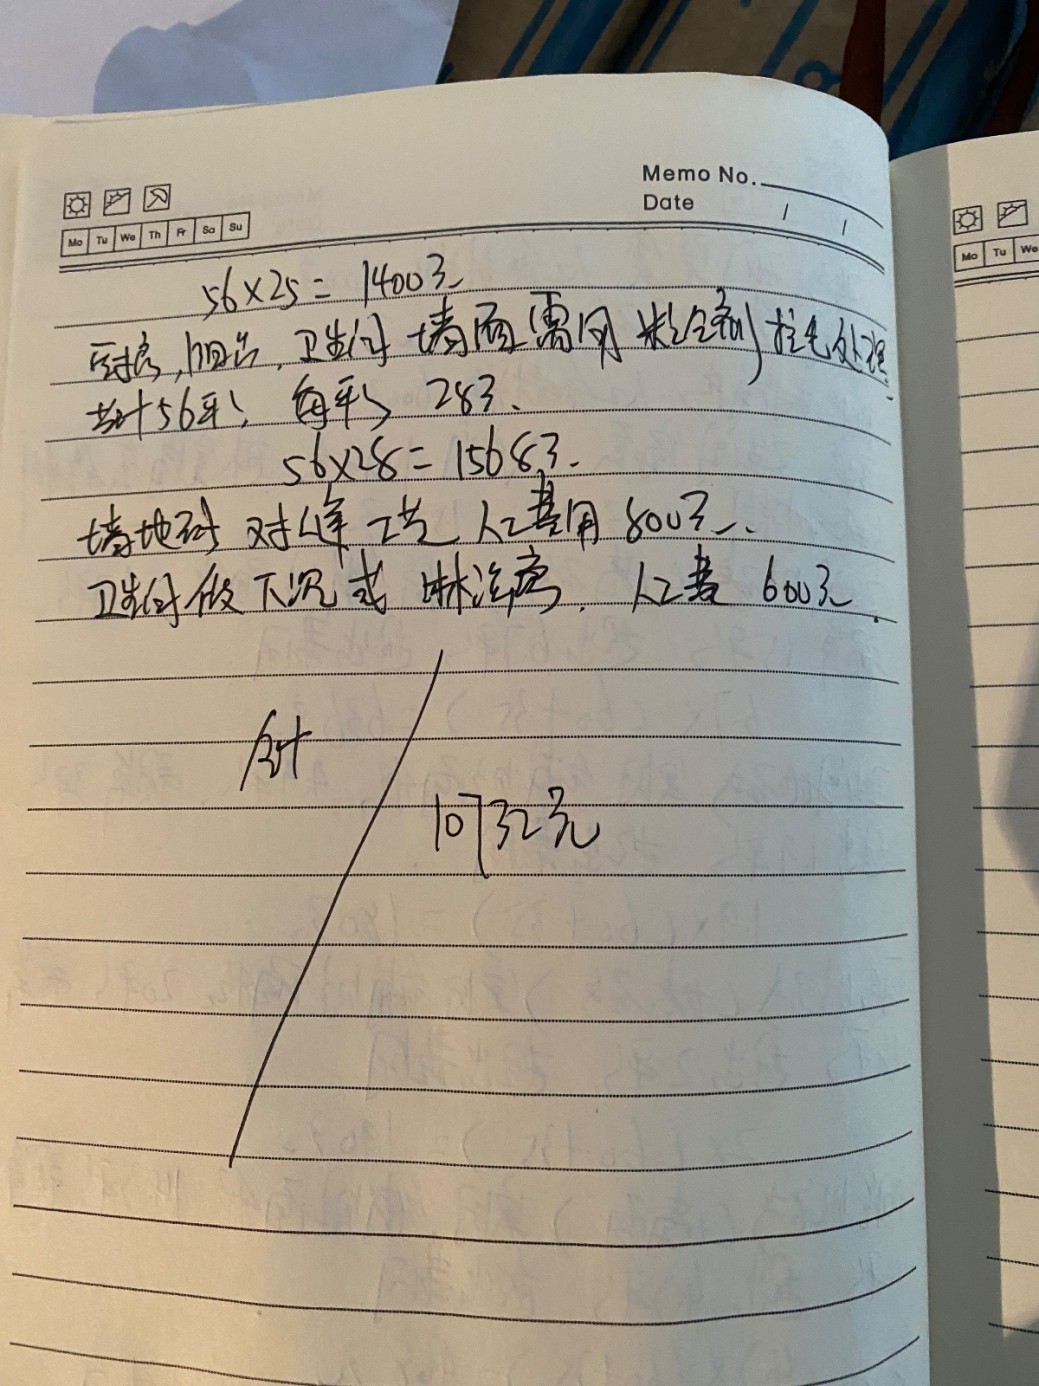 Memo No.
Date / /
Mo Tu We Th Fr Sa Su
56×25=1400元
厨房,阳台,卫生间 墙面需用 粘合剂 拉毛处理
共计56平, 每平 28元.
56×28=1568元.
墙地砖 对缝 工艺 人工费用 800元.
卫生间做下沉式 淋浴房. 人工费 600元.
合计
10732元
Mo Tu We